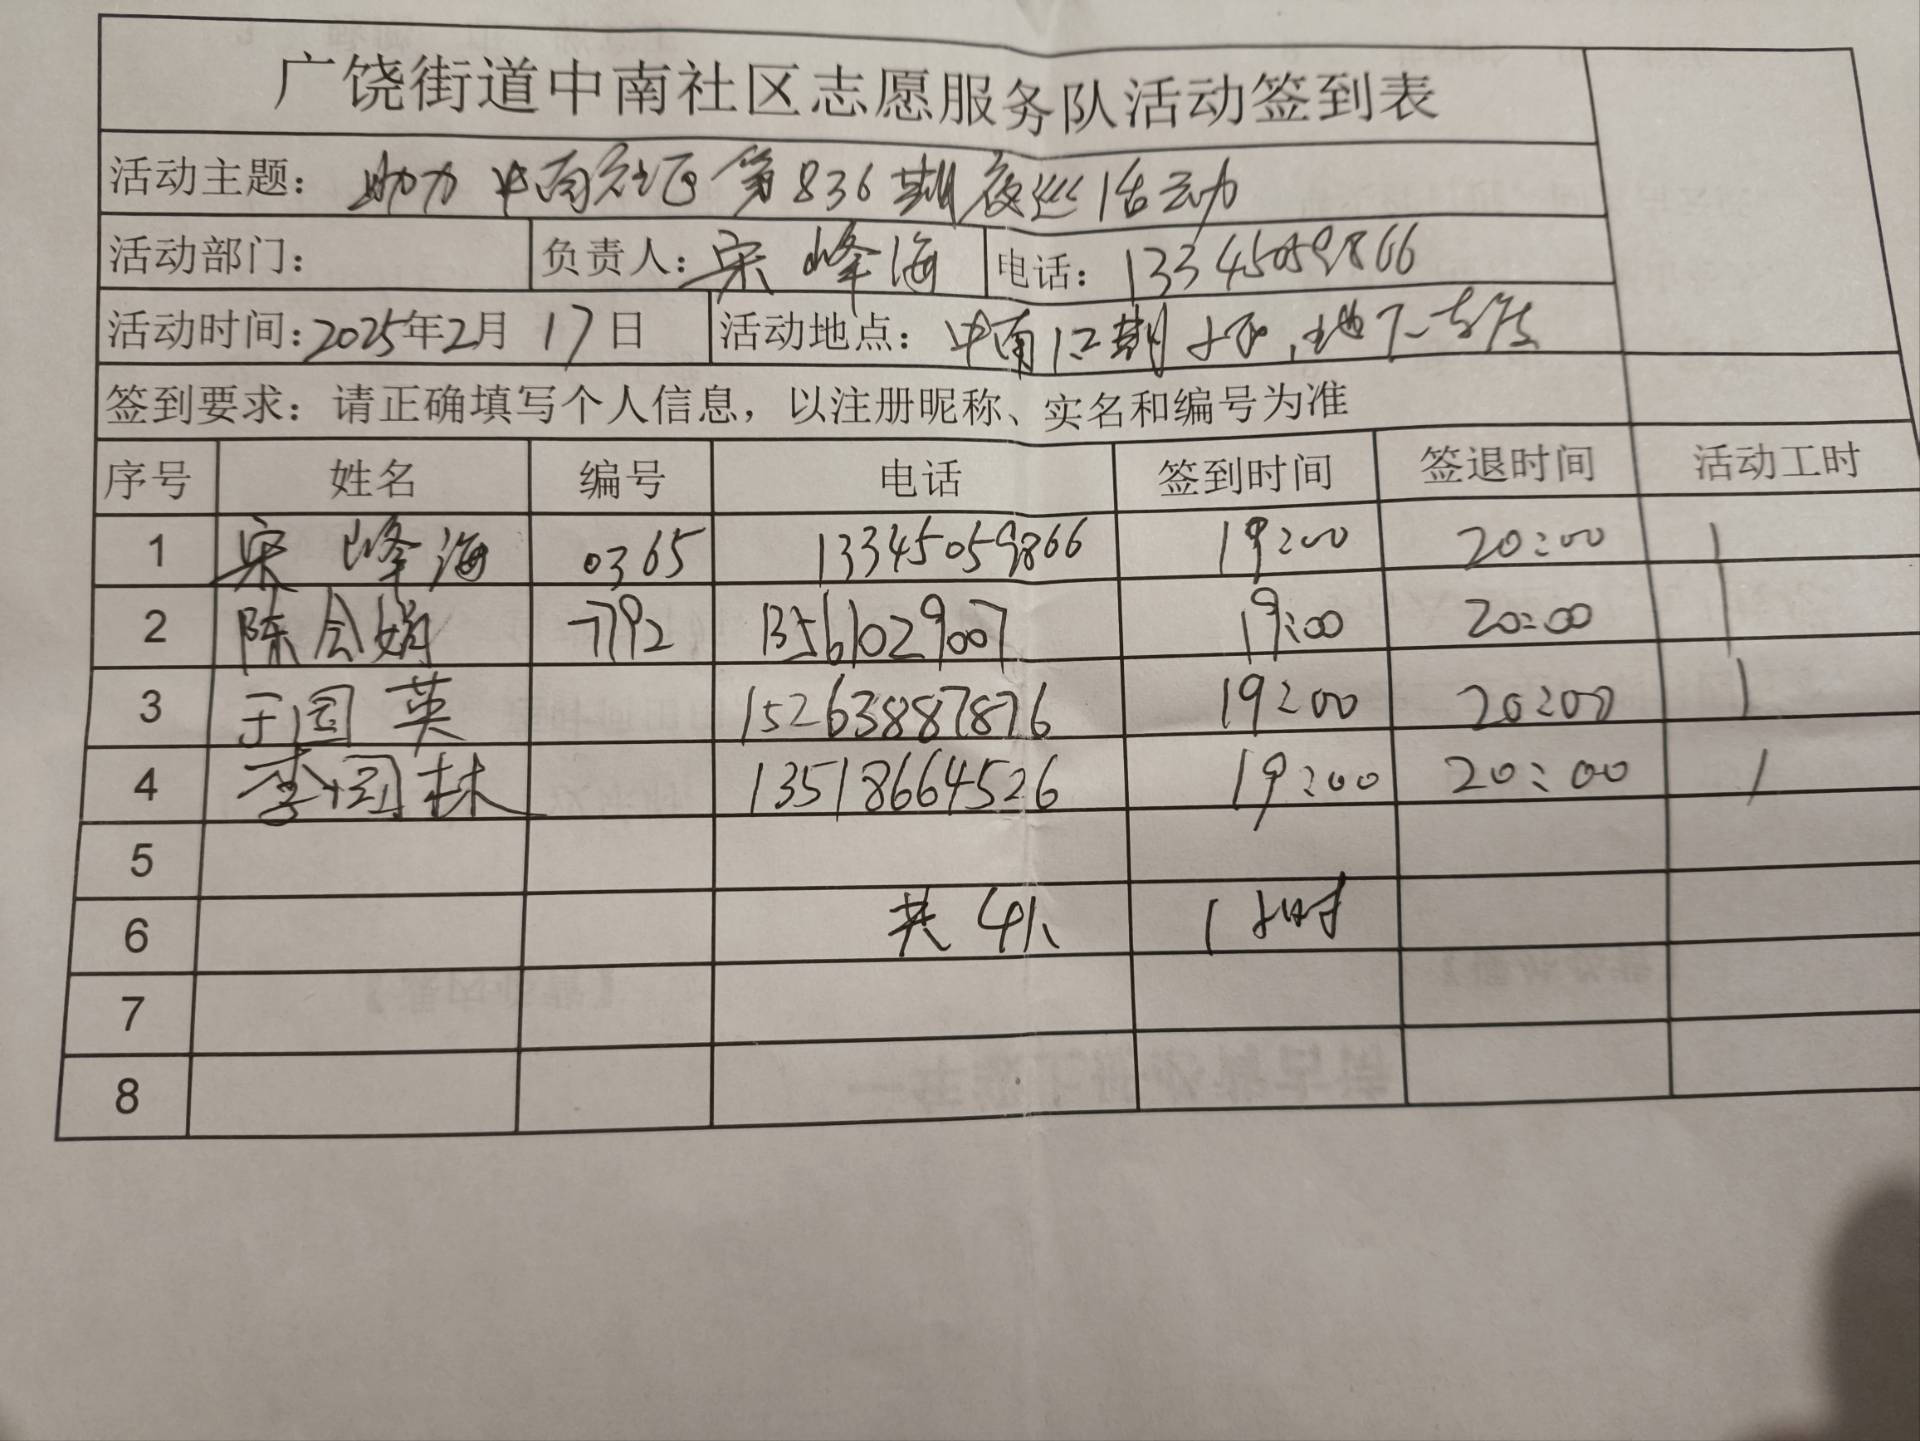 广饶街道中南社区志愿服务队活动签到表
活动主题：助力中南社区第836期夜巡活动
活动部门： 负责人：宋峰海 电话：13345059866
活动时间：2025年2月17日 活动地点：中南1.2期小区，地下
签到要求：请正确填写个人信息，以注册昵称、实名和编号为准
序号 姓名 编号 电话 签到时间 签退时间 活动工时
1 宋峰海 0365 13345059866 19:00 20:00 1
2 陈会娟 7792 13561029007 19:00 20:00 1
3 于国英 15263887876 19:00 20:00 1
4 李国林 13518664526 19:00 20:00 1
5
6 共4人 1小时
7
8